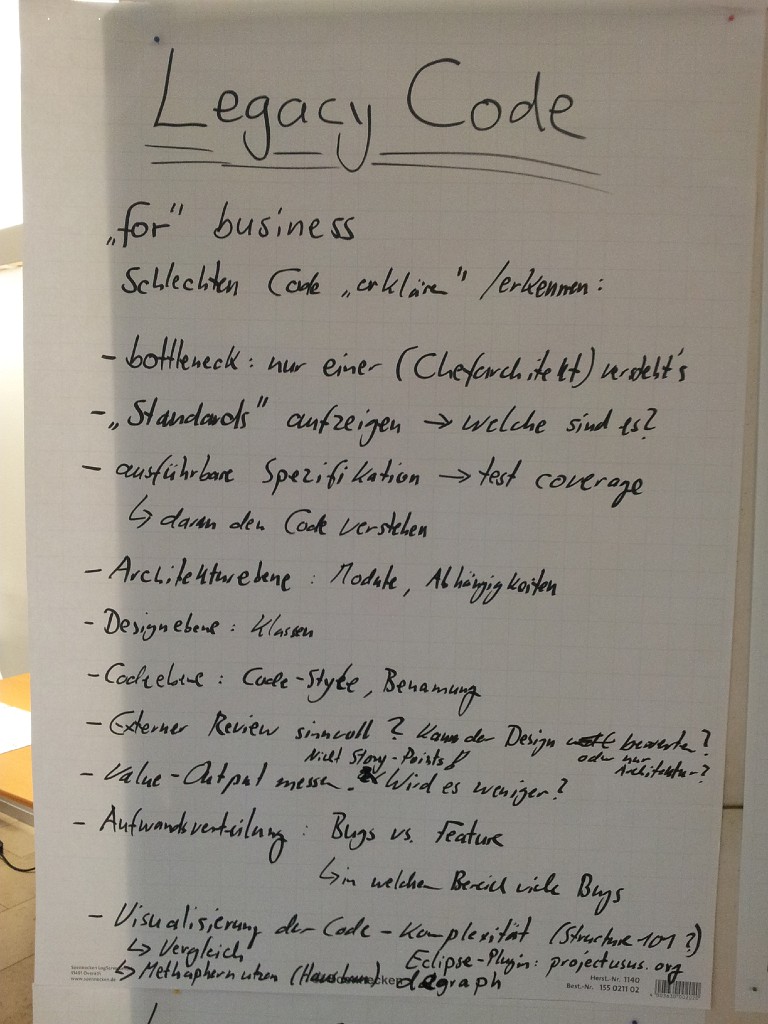 Legacy Code
„for" business
Schlechten Code „erklären" / erkennen:
- bottleneck: nur einer (Chefarchitekt) versteht's
- „Standards" aufzeigen → welche sind es?
- ausführbare Spezifikation → test coverage
↳ daran den Code verstehen
- Architekturebene: Module, Abhängigkeiten
- Designebene: Klassen
- Codeebene: Code-Style, Benamung
- Externer Review sinnvoll? Kann der Design bewerten?
oder nur Architektur?
Nicht Story-Points!
- Value-Output messen. Wird es weniger?
- Aufwandsverteilung: Bugs vs. Feature
↳ in welchen Bereich viele Bugs
- Visualisierung der Code-Komplexität (Structure 101?)
↳ Vergleich
Eclipse-Plugin: projectusus.org
↳ Methaphern nutzen
dagraph
www.neuland
Herst.-Nr. 1140
Best.-Nr. 155 0211 02